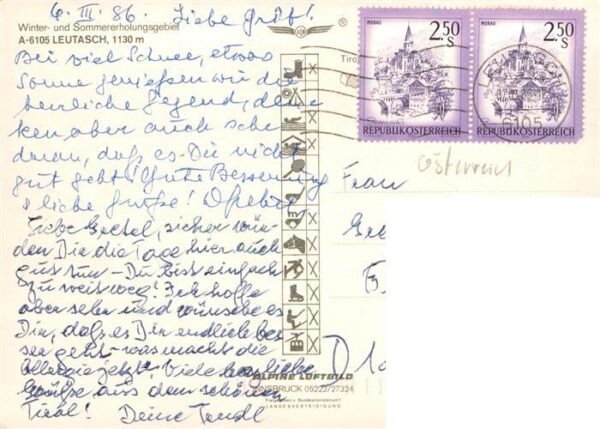 6. III. 86. Liebe Grüß!
Winter- und Sommererholungsgebiet
A-6105 LEUTASCH, 1130 m
Bei viel Schnee, etwas
Sonne genießen wir die
herrliche Gegend, den-
ken aber auch sehr
daran, daß es Dir nicht
gut geht! Gute Besserung
& liebe Grüße!
Liebe Gretel, sicher wür-
den Dir die Tage hier auch
gut tun – Du bist einfach
zu weit weg! Ich hoffe
aber sehr und wünsche es
Dir, daß es Dir endlich bes-
ser geht – was macht die
Allergie jetzt? Viele herzliche
Grüße aus dem schönen
Tirol! Deine
Tiro
MURAU
2.50
S
REPUBLIK ÖSTERREICH
MURAU
2.50
S
REPUBLIK ÖSTERREICH
Österreich
Frau
D
ALPINE LUFTBILD
INNSBRUCK 05222/27324
LANDESVERTEIDIGUNG